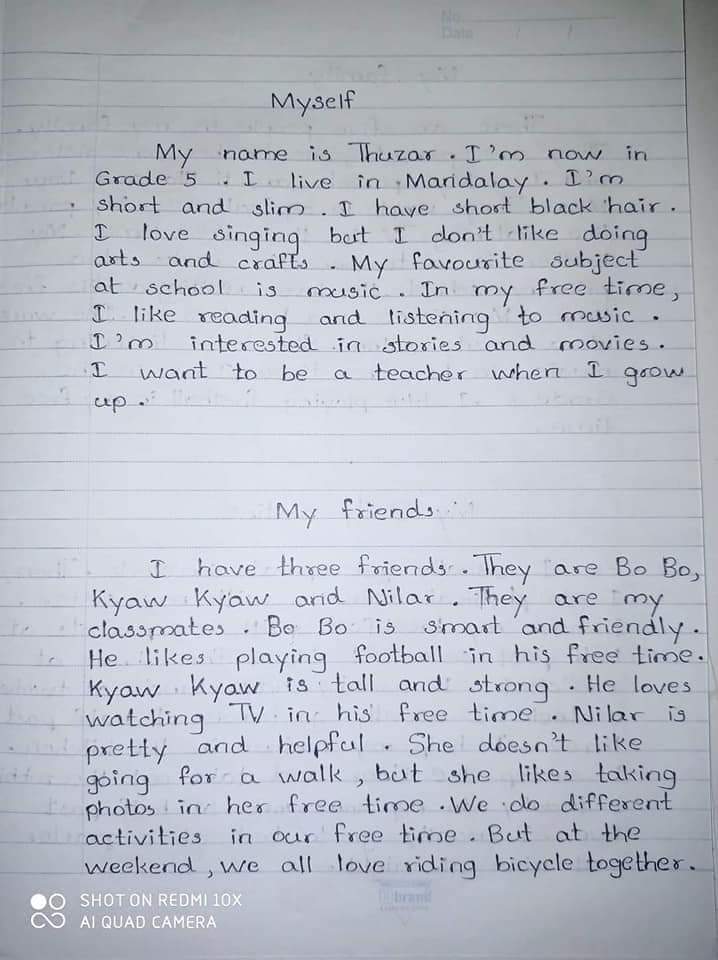 No.
Date / /
Myself
My name is Thuzar. I'm now in
Grade 5. I live in Mandalay. I'm
short and slim. I have short black hair.
I love singing but I don't like doing
arts and crafts. My favourite subject
at school is music. In my free time,
I like reading and listening to music.
I'm interested in stories and movies.
I want to be a teacher when I grow
up.
My friends
I have three friends. They are Bo Bo,
Kyaw Kyaw and Nilar. They are my
classmates. Bo Bo is smart and friendly.
He likes playing football in his free time.
Kyaw Kyaw is tall and strong. He loves
watching TV in his free time. Nilar is
pretty and helpful. She doesn't like
going for a walk, but she likes taking
photos in her free time. We do different
activities in our free time. But at the
weekend, we all love riding bicycle together.
brand
SHOT ON REDMI 10X
AI QUAD CAMERA